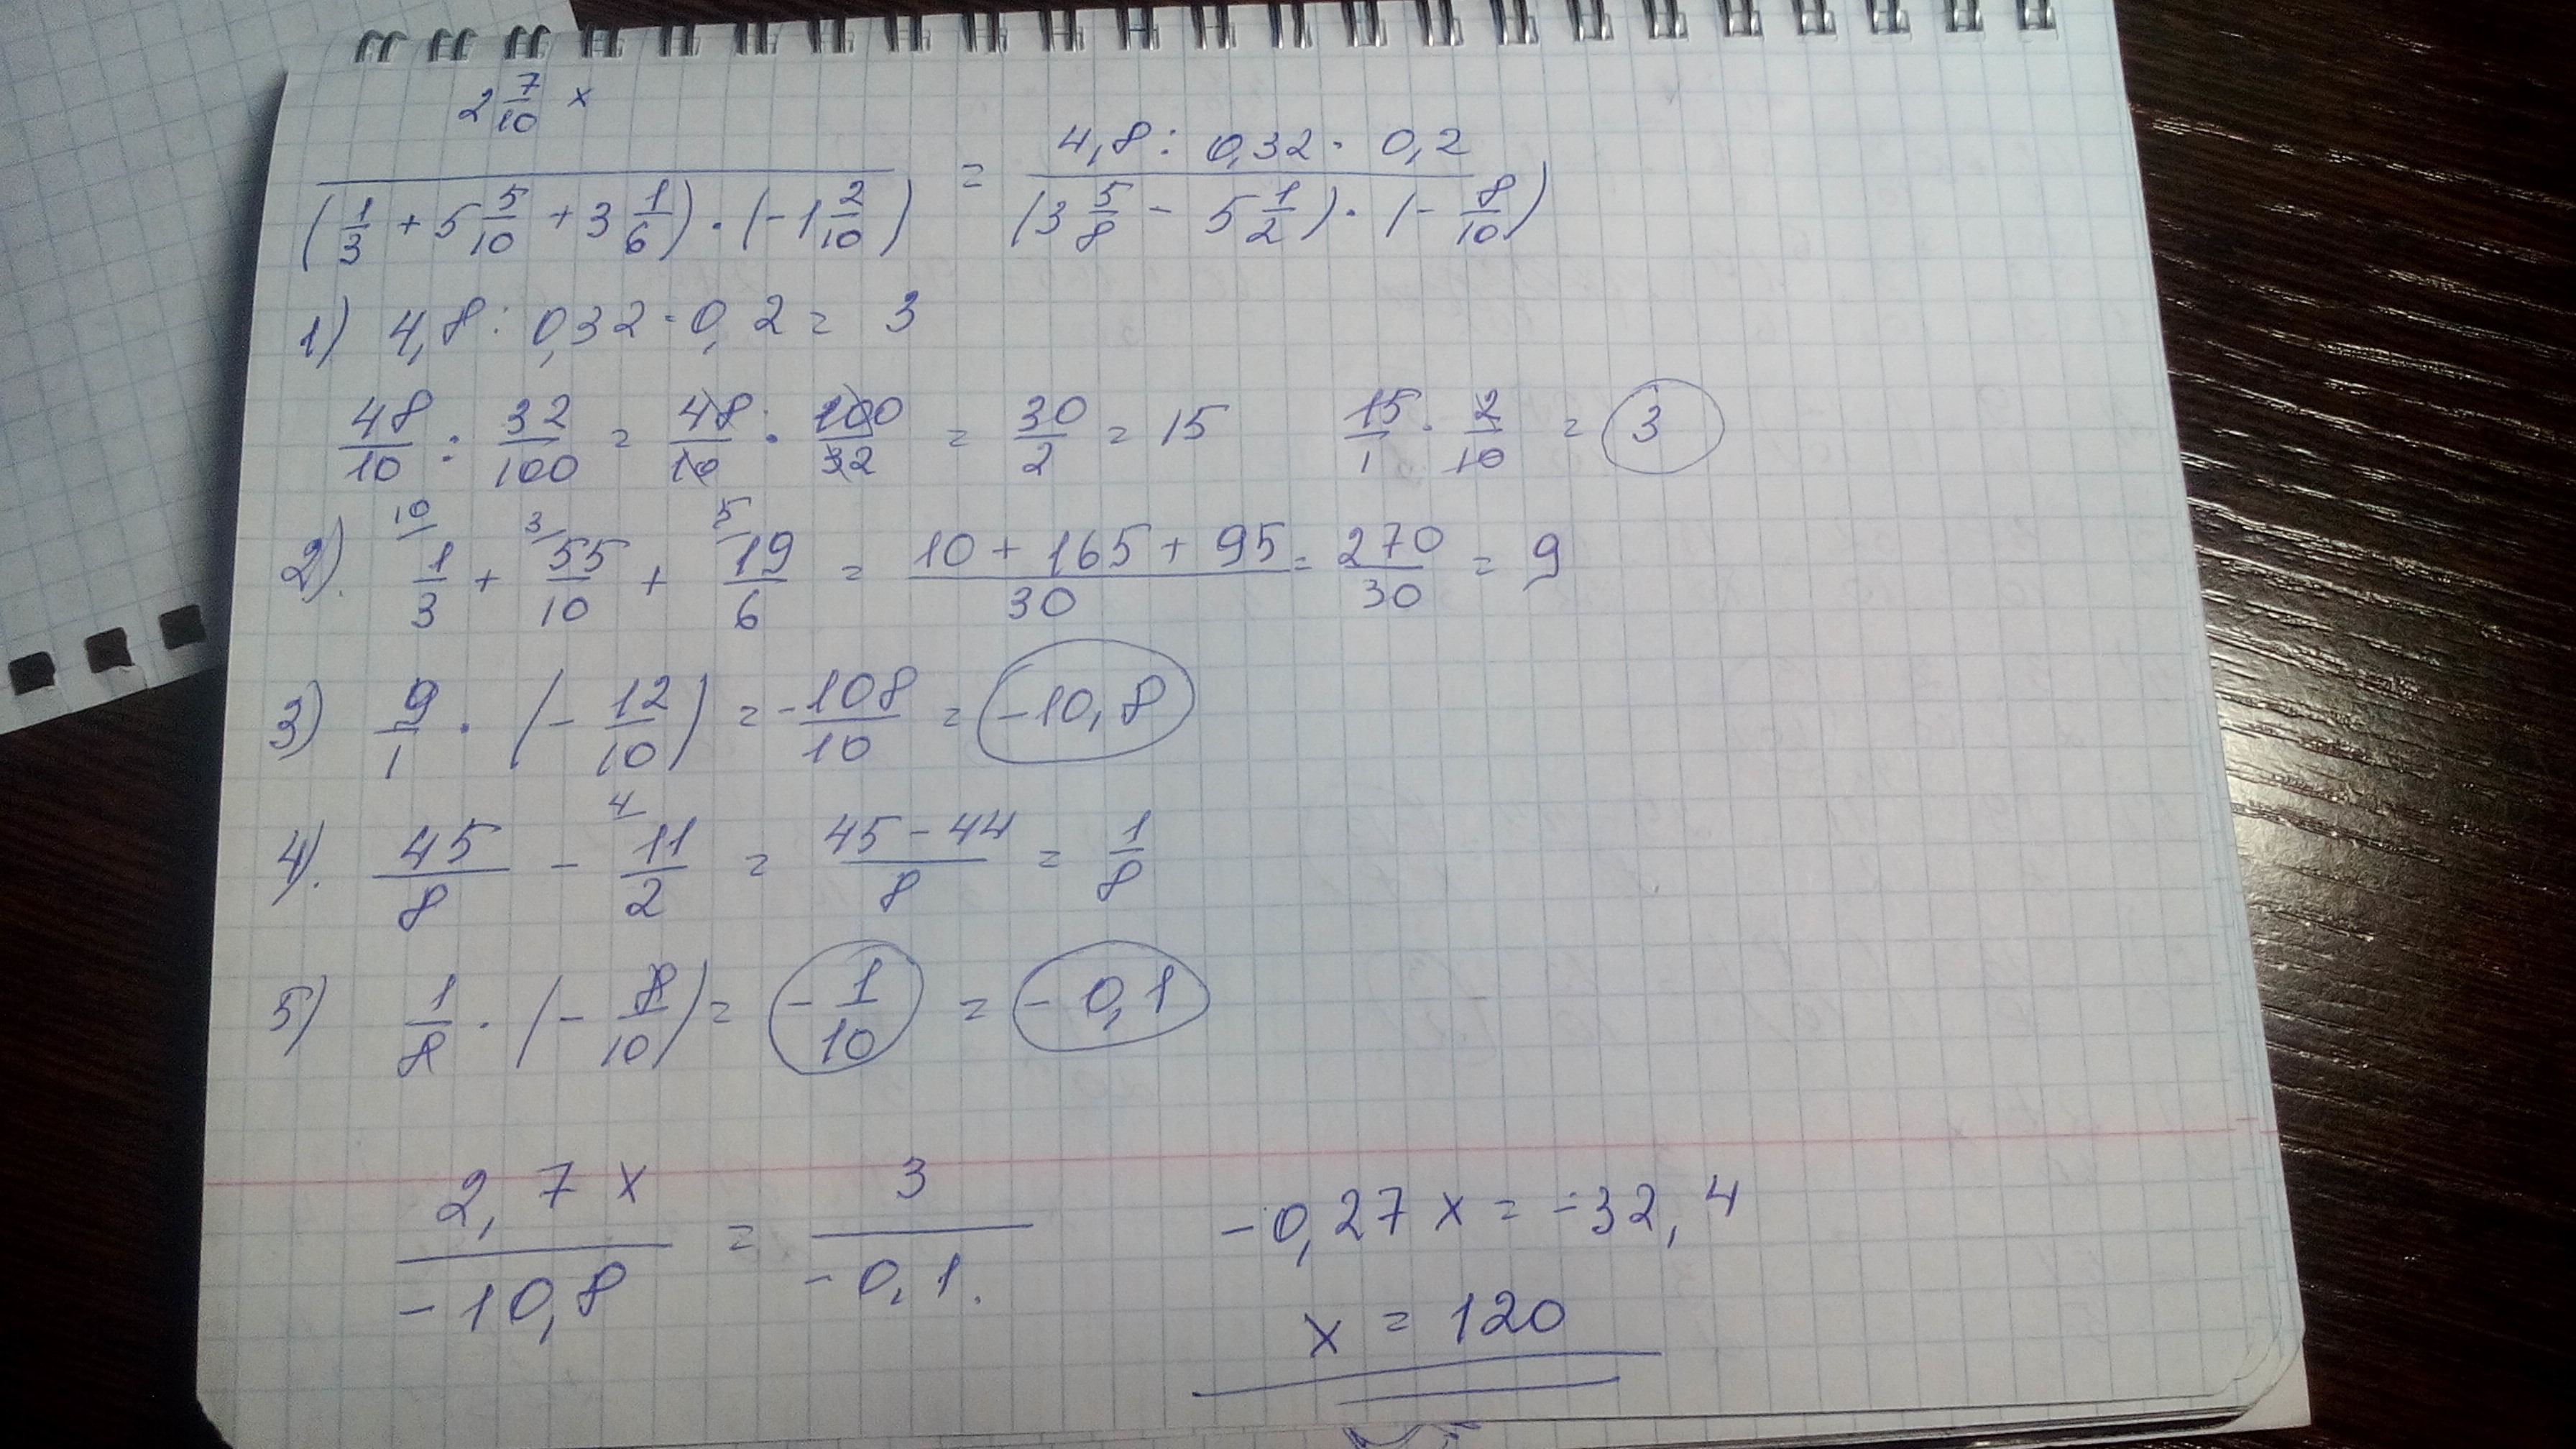 2 7/10 x / ((1/3 + 5 5/10 + 3 1/6) · (-1 2/10)) = 4,8 : 0,32 · 0,2 / ((3 5/8 - 5 1/2) · (- 8/10))
1) 4,8 : 0,32 · 0,2 = 3
48/10 : 32/100 = 48/10 · 100/32 = 30/2 = 15 15/1 · 2/10 = 3
2). 10 1/3 + 3 55/10 + 5 19/6 = 10 + 165 + 95 / 30 = 270/30 = 9
3) 9/1 · (- 12/10) = - 108/10 = -10,8
4). 45/8 - 4 11/2 = 45 - 44 / 8 = 1/8
5) 1/8 · (- 8/10) = - 1/10 = - 0,1
2,7 x / -10,8 = 3 / -0,1. -0,27 x = -32,4
x = 120